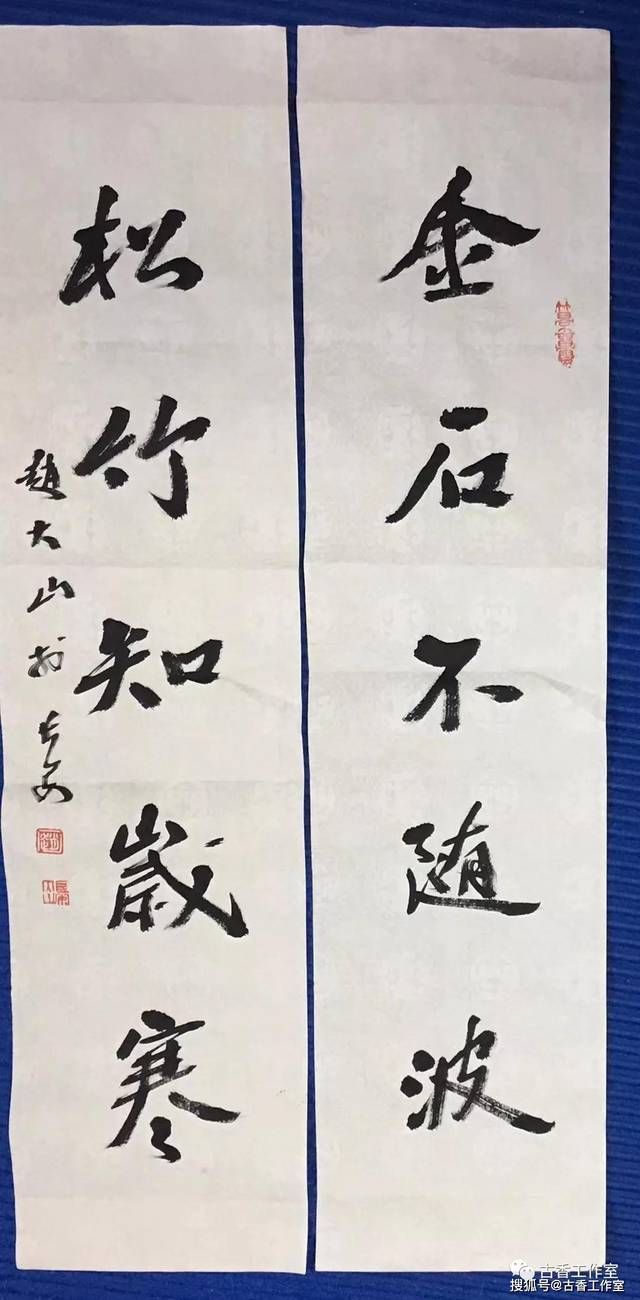 金石不随波
松竹知歲寒
趙大山於长安
古香工作室
搜狐号@古香工作室